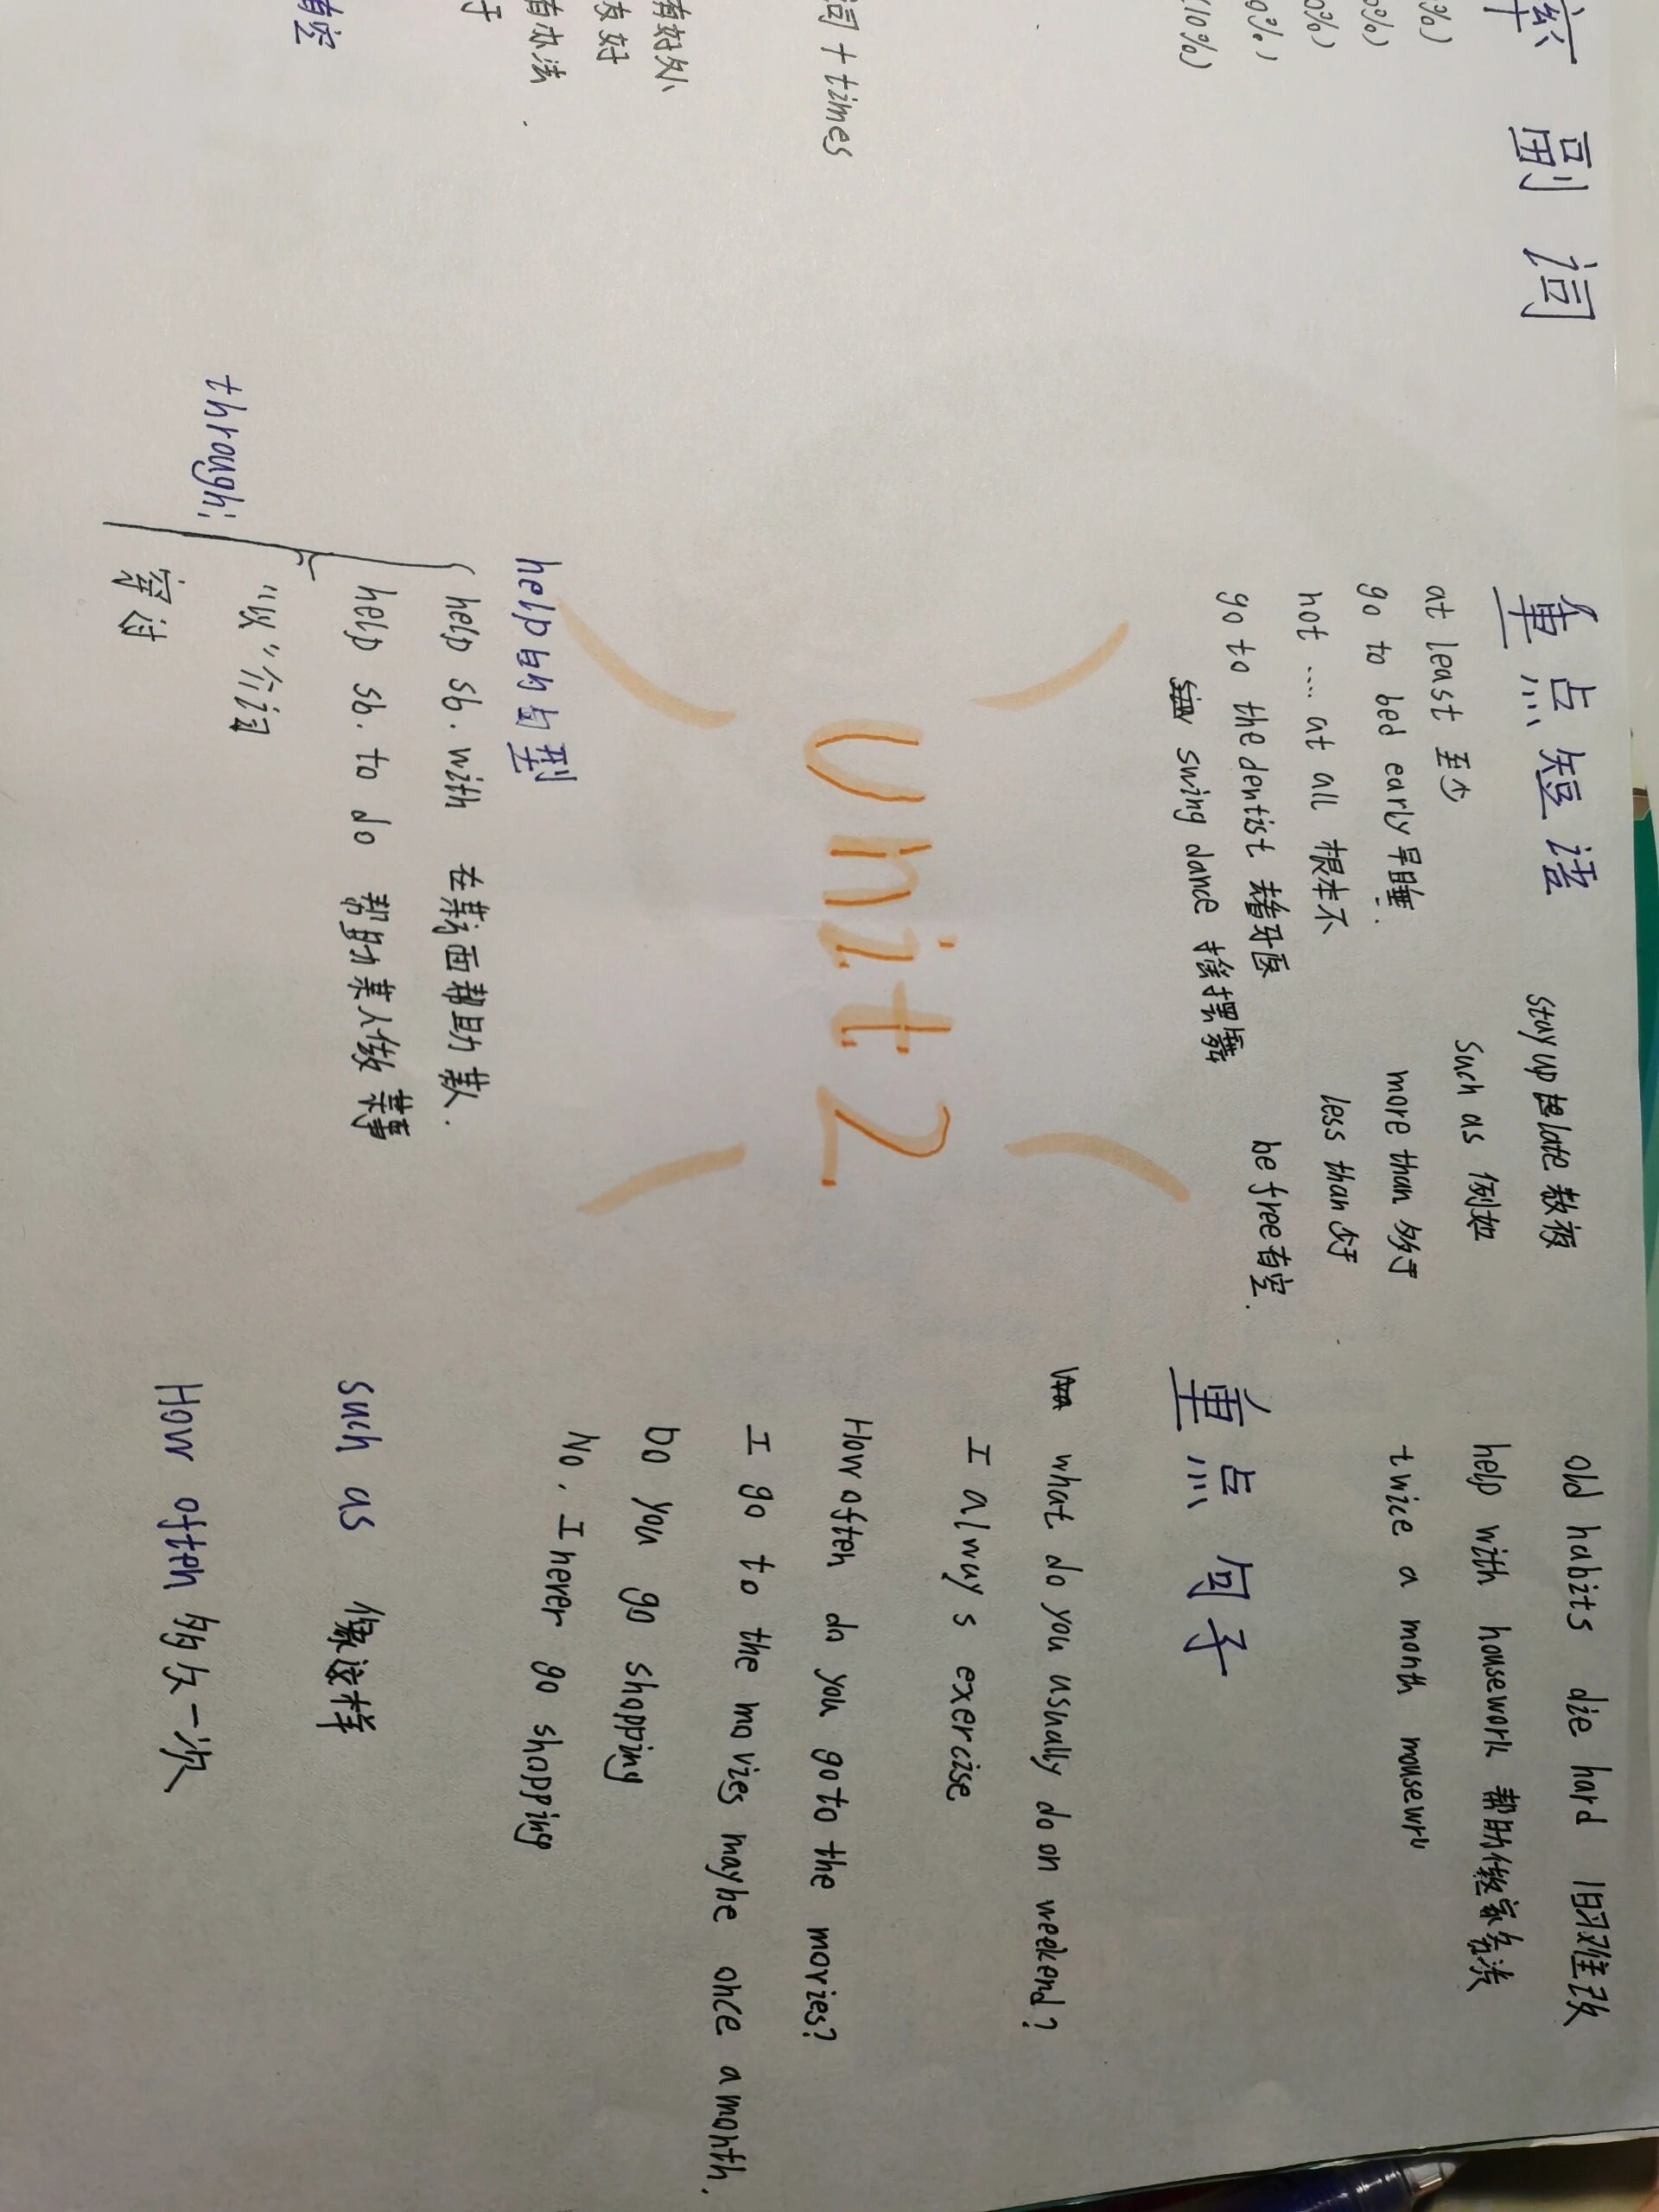 率 副 词
%)
0%)
0%)
0%)
(10%)
词 + times
有好处
友好
有办法.
于
有空
重点短语
at least 至少
go to bed early 早睡.
not .... at all 根本不
go to the dentist 去看牙医
swing dance 摇摆舞
stay up late 熬夜
such as 例如
more than 多于
less than 少于
be free 有空.
old habits die hard 旧习难改
help with housework 帮助做家务
twice a month
Unit 2
重点 句子
what do you usually do on weekend?
I always exercise
How often do you go to the movies?
I go to the movies maybe once a month.
Do you go shopping
No, I never go shopping
help的句型
help sb. with 在某方面帮助某人.
help sb. to do 帮助某人做某事
through:
"以"介词
穿过
such as 像这样
How often 多久一次